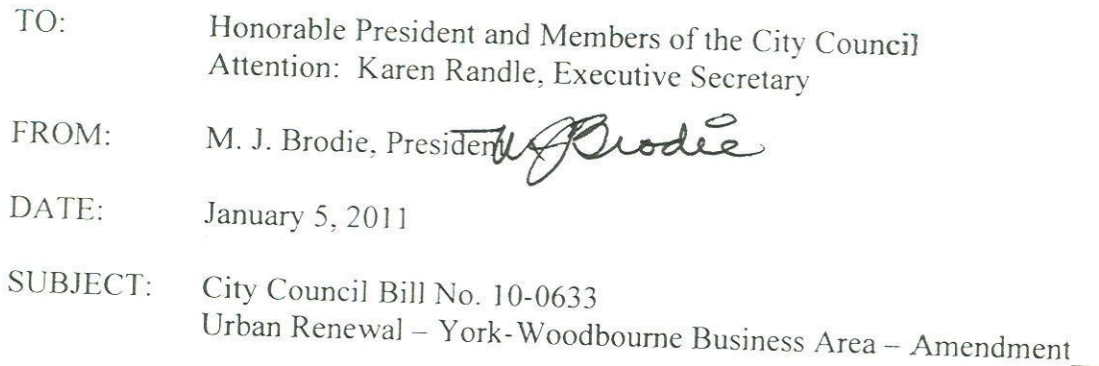 TO: Honorable President and Members of the City Council
Attention: Karen Randle, Executive Secretary
FROM: M. J. Brodie, President MJBrodie
DATE: January 5, 2011
SUBJECT: City Council Bill No. 10-0633
Urban Renewal – York-Woodbourne Business Area – Amendment